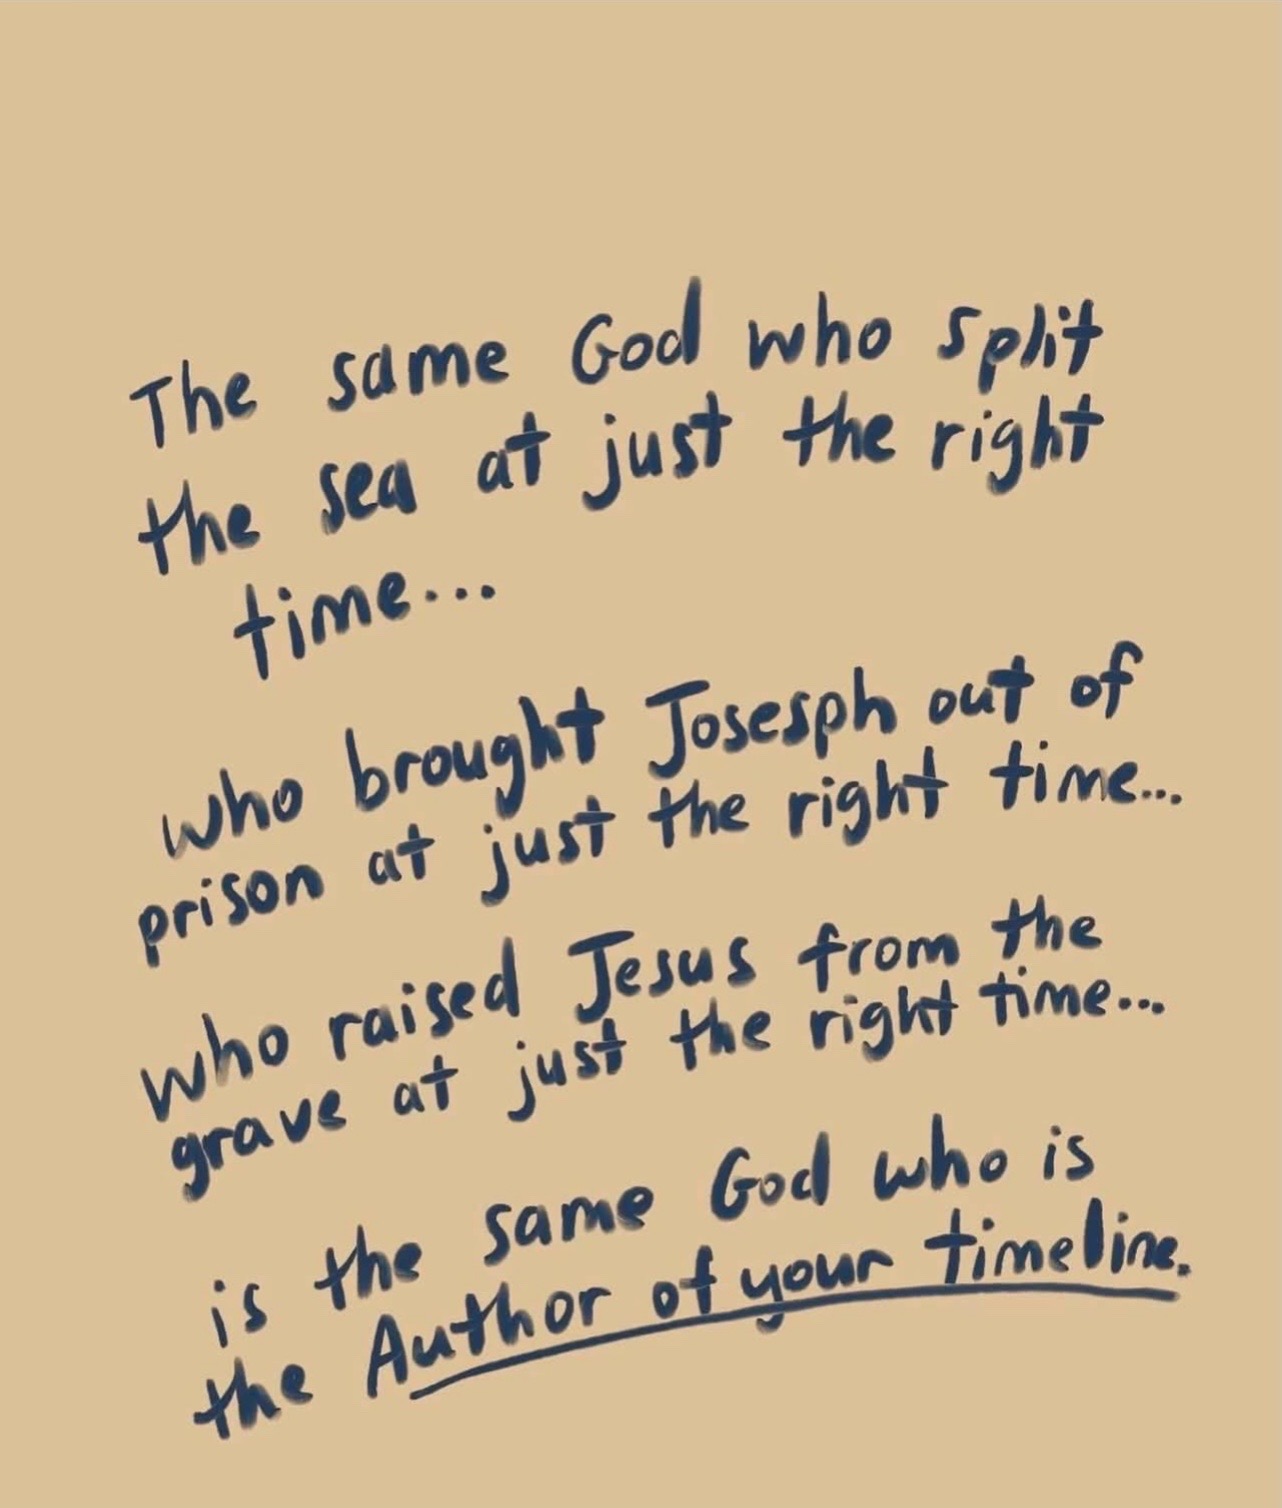 The same God who split
the sea at just the right
time...
who brought Josesph out of
prison at just the right time...
who raised Jesus from the
grave at just the right time...
is the same God who is
the Author of your timeline.